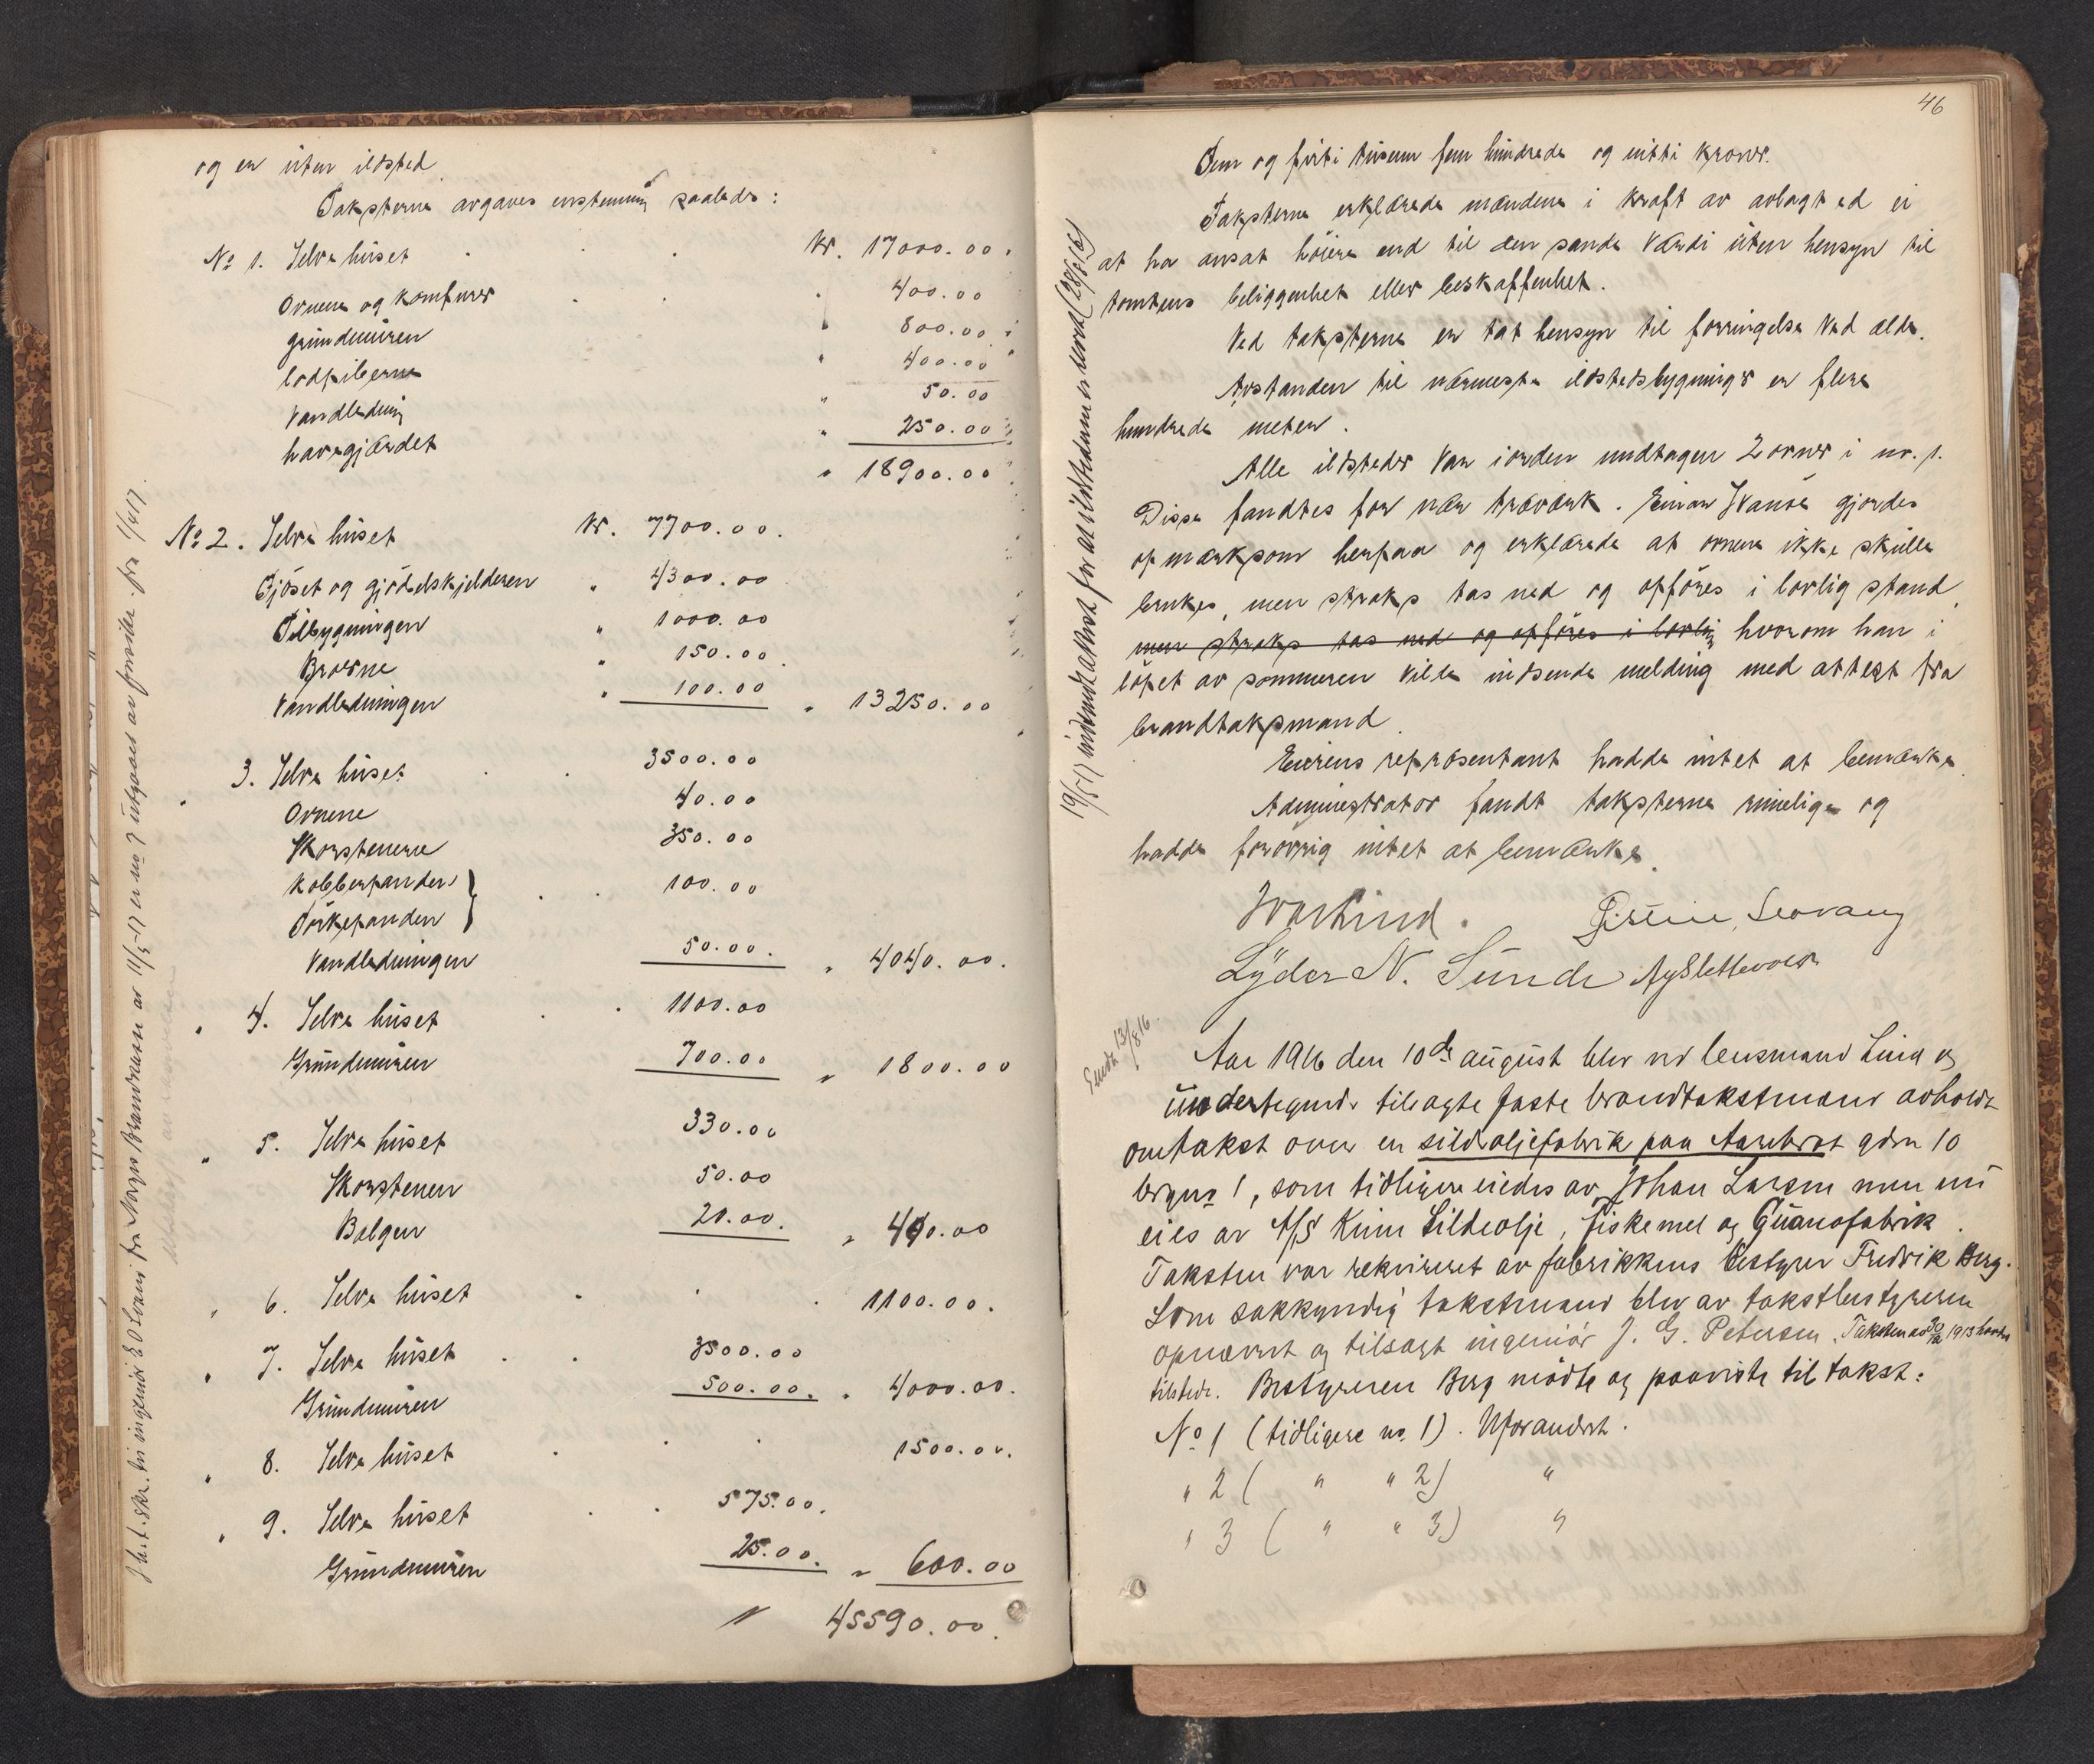 og er uten ildsted.
Taksterne avgaves enstemmig saalede:
No 1. Selve huset . . . Kr. 17000.00.
Ovnene og komfurer . . " 400.00
grundmuren " 800.00
lodpiberne " 400.00
Vandledning " 50.00
havegjærdet " 250.00
" 18900.00
No 2. Selve huset Kr. 7700.00.
Fjöset og gjödselskjelderen " 4300.00
Tilbygningen " 1000.00
Broerne " 150.00
Vandledningen " 100.00 " 13250.00
" 3. Selve huset . . 3500.00
Ovnene 40.00
Skorstenene 350.00
Kobberpanden }
Törkepanden } . . 100.00
Vandledningen 50.00. " 4040.00.
" 4. Selve huset . . 1100.00
Grundmuren 700.00 " 1800.00
" 5. Selve huset 330.00
Skorstenen 50.00
Belgen 20.00. " 400.00
" 6. Selve huset . . . 1100.00.
" 7. Selve huset . . 3500.00
Grundmuren 500.00. " 4000.00.
" 8. Selve huset . . 1500.00.
" 9. Selve huset . . 575.00.
Grundmuren 25.00. " 600.00
" 45590.00.
46
Fem og firti tusen fem hundrede og nitti kroner.
Taksterne erklærede mændene i kraft av avlagt ed ei
at ha ansat höiere end til den sande Værdi uten hensyn til
tomtens beliggenhet eller beskaffenhet.
Ved taksterne er tat hensyn til forringelse ved ælde.
Avstanden til nærmeste ildstedsbygninger er flere
hundrede meter.
Alle ildsteder var iorden undtagen 2 ovner i nr. 1.
Disse fandtes for nær træværk. Einar gjordes
opmærksom herpaa og erklærede at ovnene ikke skulle
brukes, men straks tas ned og opföres i lovlig stand,
men straks tas ned og opföres i lovlig hvorom han i
löpet av sommeren vilde indsende melding med attest fra
brandtaksmand.
Eierens repræsentant hadde intet at bemærke.
Administrator fandt taksterne rimelige og
hadde forövrig intet at bemærke.
Ivar Lind.
Lyder N. Sunde
Aar 1916 den 10de august blev ved lensmand Lind og
undertegnede tilsagte faste brandtakstmænd avholdt
omtakst over en sildeoljefabrik paa Aarebrot gdrn 10
brgno 1, som tidligere eiedes av Johan Larsen men nu
eies av A/S Kinn Sildeolje, fiskemel og Guanofabrik.
Taksten var rekvireret av fabrikkens bestyrer Fredrik Berg.
Som sakkyndig takstmand blev av takstbestyreren
opnævnt og tilsagt ingeniör J. G. Petersen. Taksten av 30/12 1913 havdes
tilstede. Bestyreren Berg mödte og paaviste til takst:
No 1 (tidligere no. 1). Uforandret.
" 2 ( " " 2) "
" 3 ( " " 3) "